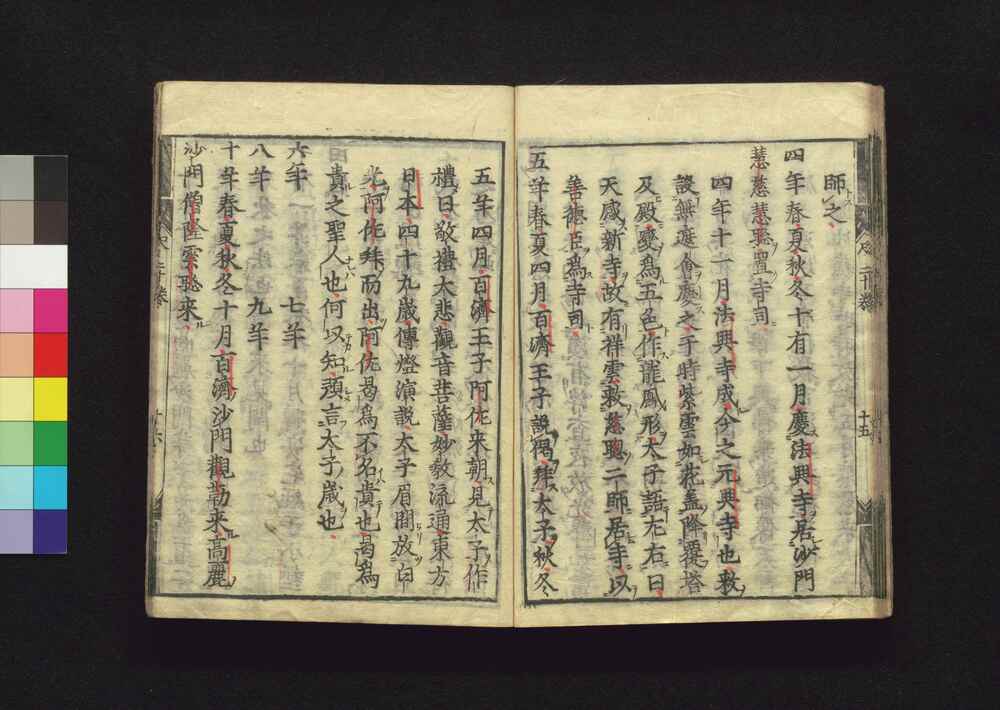 師之
四年春夏秋冬十有一月慶法興寺居沙門
慧慈慧聡置寺司
四年十一月法興寺成今之元興寺也救
設無遮會慶之于時紫雲如花盖降覆塔
及殿變爲五色作龍鳳形太子語左右曰
天感新寺故有祥雲救慈聰二師居寺以
善德臣爲寺司
五年春夏四月百濟王子説偈拜太子秋冬
十五
五年四月百濟王子阿佐来朝見太子作
禮曰敬禮大悲觀音菩薩妙教流通東方
日本四十九歲傳燈演説太子眉間放白
光阿佐拜而出阿佐曷爲不名貴也曷爲
貴之聖人也何以知預言太子歲也
六年 七年
八年 九年
十年春夏秋冬十月百濟沙門觀勒来高麗
沙門僧隆雲聡来
十六